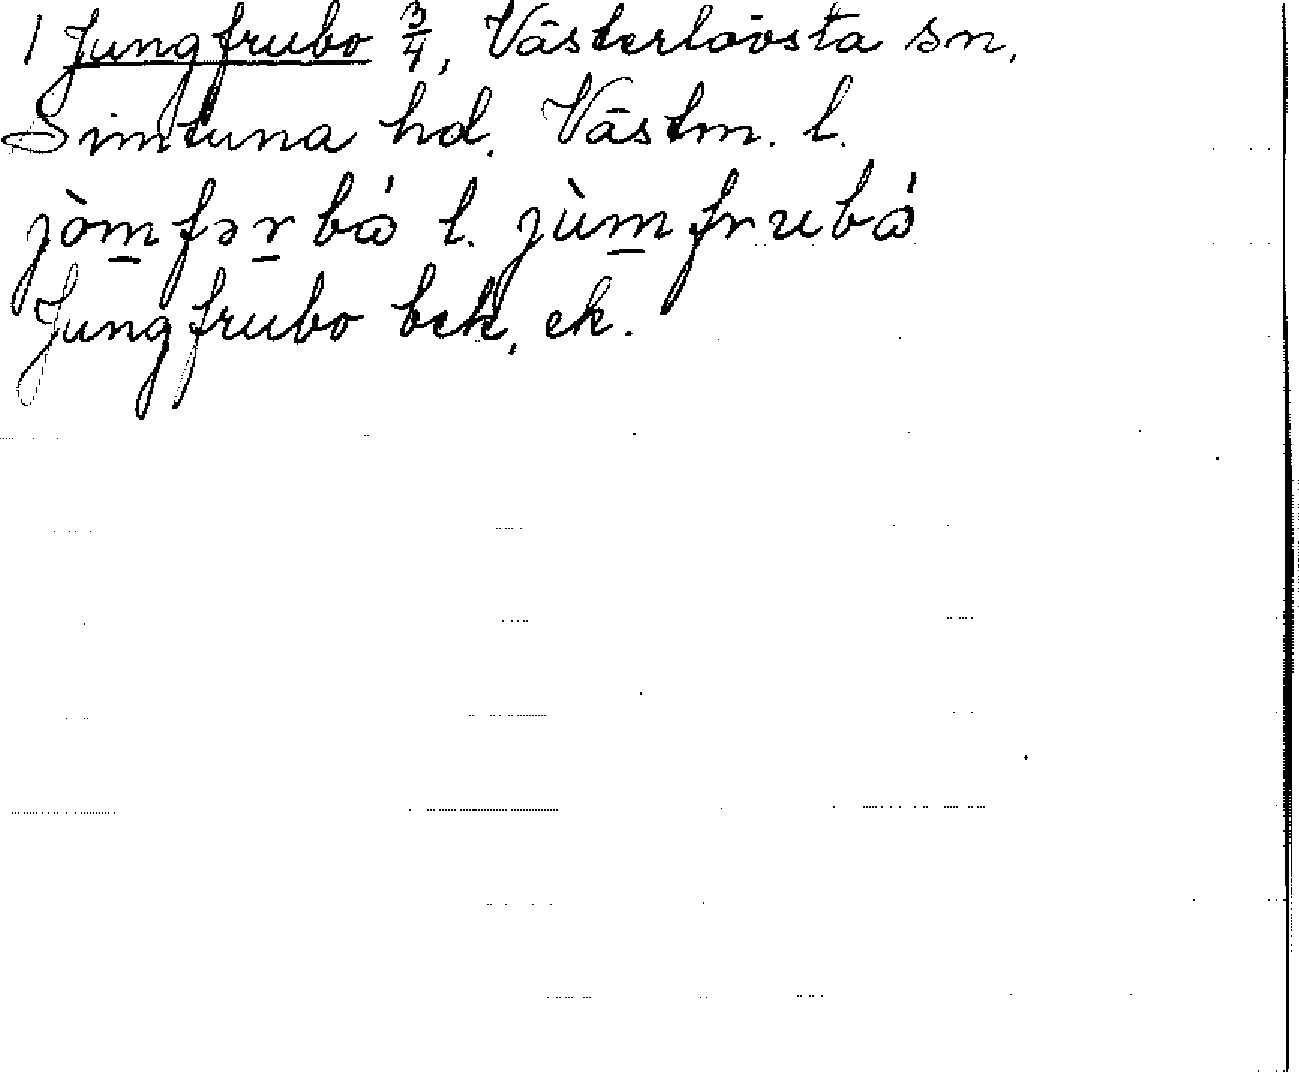 1 Jungfrubo 3/4, Västerlövsta sn,
Simtuna hd. Västm. l.
jòm̲fər̲bá l. jùm̲frubá
Jungfrubo bek, ek.